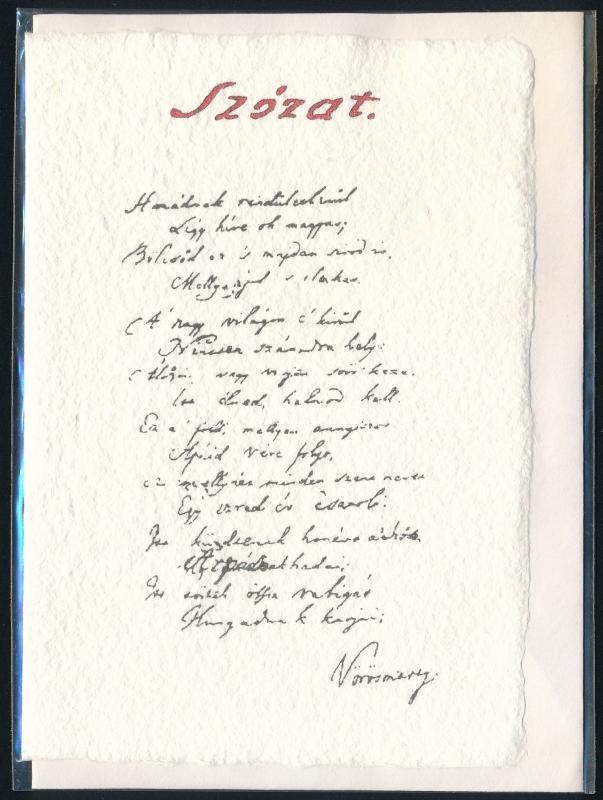 Szózat.
Hazádnak rendületlenűl
Légy híve oh magyar;
Bölcsőd ez is majdan sirod is,
Melly ápol s eltakar.
A' nagy világon e' kivűl
Nincsen számodra hely;
Áldjon vagy verjen sors keze,
Itt élned, halnod kell.
Ez a' föld, mellyen annyiszor
Apáid vére folyt,
ez mellyhez minden szent nevet
Egy ezred év csatolt.
Itt küzdtenek honért a' hős
Árpádnak hadai;
Itt törtek össze rabigát
Hunyadnak karjai;
Vörösmarty.